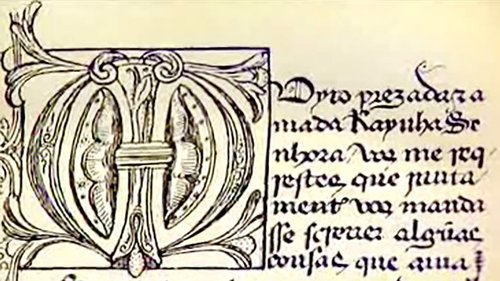 MVyto prezada z a
mada Raynha Se
nhora Vos me req
restes que junta
ment vos manda
sse screuer algũas
cousas que auia